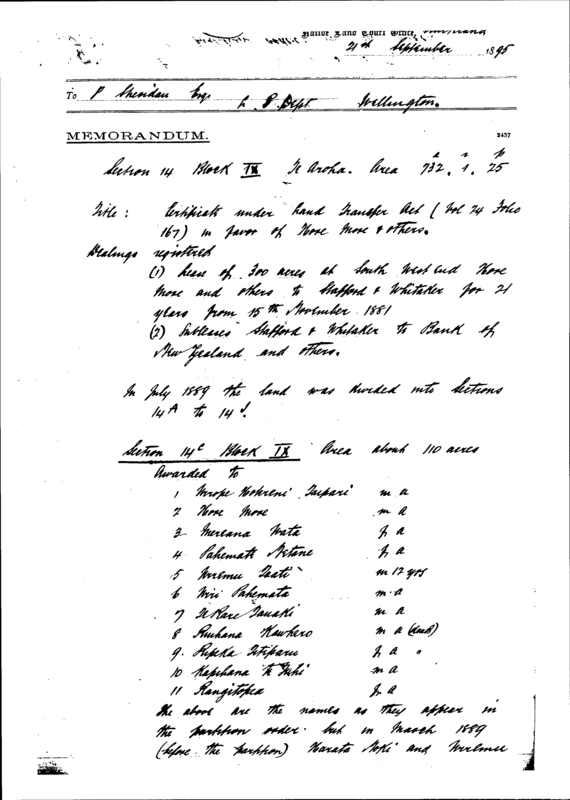 Native Land Court Office,
21st September 1895
To P Sheridan Esqe L. P. Dept Wellington.
MEMORANDUM.
2437
a r p
Section 14 Block IX Te Aroha. Area 732. 1. 25
Title : Certificate under Land Transfer Act (Vol 24 Folio
167) in favor of Hore More & others.
Dealings registered
(1) Lease of 300 acres at South West end Hore
More and others to Stafford & Whitaker for 21
years from 15th November 1881
(2) Subleases Stafford & Whitaker to Bank of
New Zealand and others.
In July 1889 the land was divided into Sections
14A to 14J.
Section 14C Block IX Area about 110 acres
Awarded to
1 Wirope Taipari m a
2 Hore More m a
3 Mereana Wata f a
4 Pahemata f a
5 Wiremu m 12 yrs
6 Wiri Pahemata m a
7 Te Kare m a
8 m a (dead)
9. Ripeka f a "
10 Kapihana te m a
11 Rangitopea f a
The above are the names as they appear in
the partition order. but in March 1889
(before the partition) Karata and Wiremu